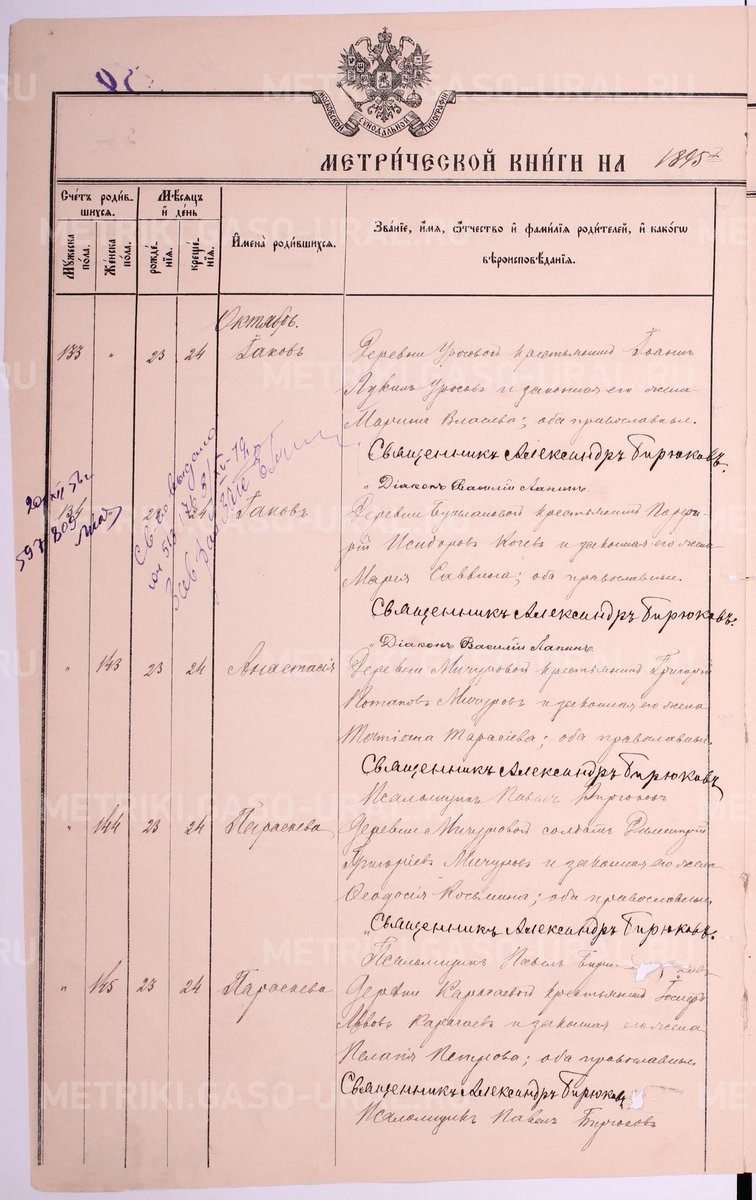 МОСКОВСКОЙ СѴНОДАЛЬНОЙ ТИПОГРАФІИ
МЕТРИ́ЧЕСКОЙ КНИ́ГИ НА 1895
Сче́тъ роди́в-
шихся.
Мѣ́сяцъ
и҆ де́нь
Му́жеска
по́ла.
Же́нска
по́ла.
рожде́-
нїѧ.
креще́-
нїѧ.
И҆мена̀ роди́вшихся.
Зва́нїе, и҆́мѧ, ѻ҆́тчество и҆ фами́лїѧ роди́телей, и҆ како́гѡ
вѣроисповѣ́данїѧ.
Октябрь.
133 " 23 24 Іаковъ Деревни Уросовой крестьянинъ Іоаннъ
Лукинъ Уросовъ и законная его жена
Марина Власіева; оба православные.
Священникъ Александръ Бирюковъ.
" Діаконъ Василій Лапинъ.
134 24 Іаковъ Деревни крестьянинъ
Исидоровъ и законная его жена
Марія Саввина; оба православные.
Священникъ Александръ Бирюковъ.
" Діаконъ Василій Лапинъ.
" 143 23 24 Анастасія Деревни Мичуровой крестьянинъ Григорій
Потаповъ Мичуровъ и законная его жена
Тарасіева; оба православные.
Священникъ Александръ Бирюковъ
Псаломщикъ Павелъ Бирюковъ
" 144 23 24 Параскева Деревни Мичуровой солдатъ Димитрій
Григоріевъ Мичуровъ и законная его жена
Ѳеодосія Косьмина; оба православные.
"Священникъ Александръ Бирюковъ.
Псаломщикъ Павелъ
" 145 23 24 Параскева Деревни Карагаевой крестьянинъ
Львовъ Карагаевъ и законная его жена
Пелагія Петрова; оба православные.
Священникъ Александръ Бирюковъ
Псаломщикъ Павелъ Бирюковъ
METRIKI.GASO-URAL.RU